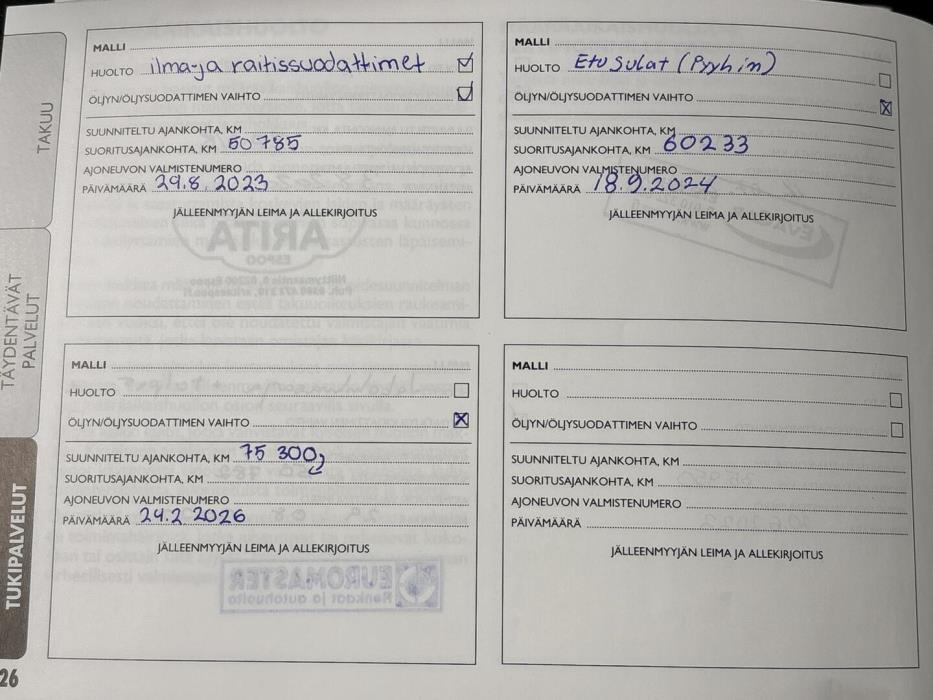 TAKUU
TÄYDENTÄVÄT
PALVELUT
TUKIPALVELUT
26
MALLI
HUOLTO ilma-ja raitissuodattimet
ÖLJYN/ÖLJYSUODATTIMEN VAIHTO
SUUNNITELTU AJANKOHTA, KM
SUORITUSAJANKOHTA, KM 50 785
AJONEUVON VALMISTENUMERO
PÄIVÄMÄÄRÄ 29.8. 2023
JÄLLEENMYYJÄN LEIMA JA ALLEKIRJOITUS
ARITA
ESPOO
MALLI
HUOLTO Etu sulat (Pyyhin)
ÖLJYN/ÖLJYSUODATTIMEN VAIHTO
SUUNNITELTU AJANKOHTA, KM
SUORITUSAJANKOHTA, KM 60233
AJONEUVON VALMISTENUMERO
PÄIVÄMÄÄRÄ 18.9.2024
JÄLLEENMYYJÄN LEIMA JA ALLEKIRJOITUS
MALLI
HUOLTO
ÖLJYN/ÖLJYSUODATTIMEN VAIHTO
SUUNNITELTU AJANKOHTA, KM 75 300
SUORITUSAJANKOHTA, KM
AJONEUVON VALMISTENUMERO
PÄIVÄMÄÄRÄ 24.2 2026
JÄLLEENMYYJÄN LEIMA JA ALLEKIRJOITUS
EUROMASTER
Renkaat ja autohuolto
MALLI
HUOLTO
ÖLJYN/ÖLJYSUODATTIMEN VAIHTO
SUUNNITELTU AJANKOHTA, KM
SUORITUSAJANKOHTA, KM
AJONEUVON VALMISTENUMERO
PÄIVÄMÄÄRÄ
JÄLLEENMYYJÄN LEIMA JA ALLEKIRJOITUS